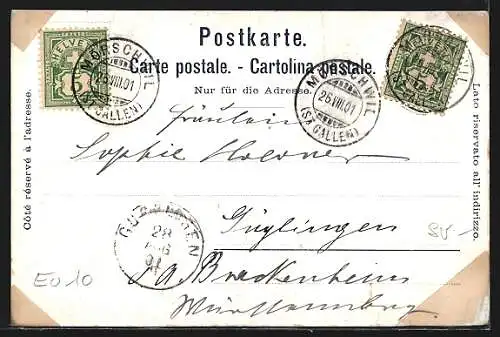 Postkarte.
Carte postale. - Cartolina postale.
Nur für die Adresse.
Côté réservé à l'adresse.
Lato riservato all' indirizzo.
HELVETIA
5
MÖRSCHWIL
26.VIII.01
(ST. GALLEN)
MÖRSCHWIL
26.VIII.01
(ST. GALLEN)
HELVETIA
Fräulein
Sophie
Güglingen
GÜGLINGEN
28
AUG
01
O/A. Brackenheim
Württemberg
E010
SV-